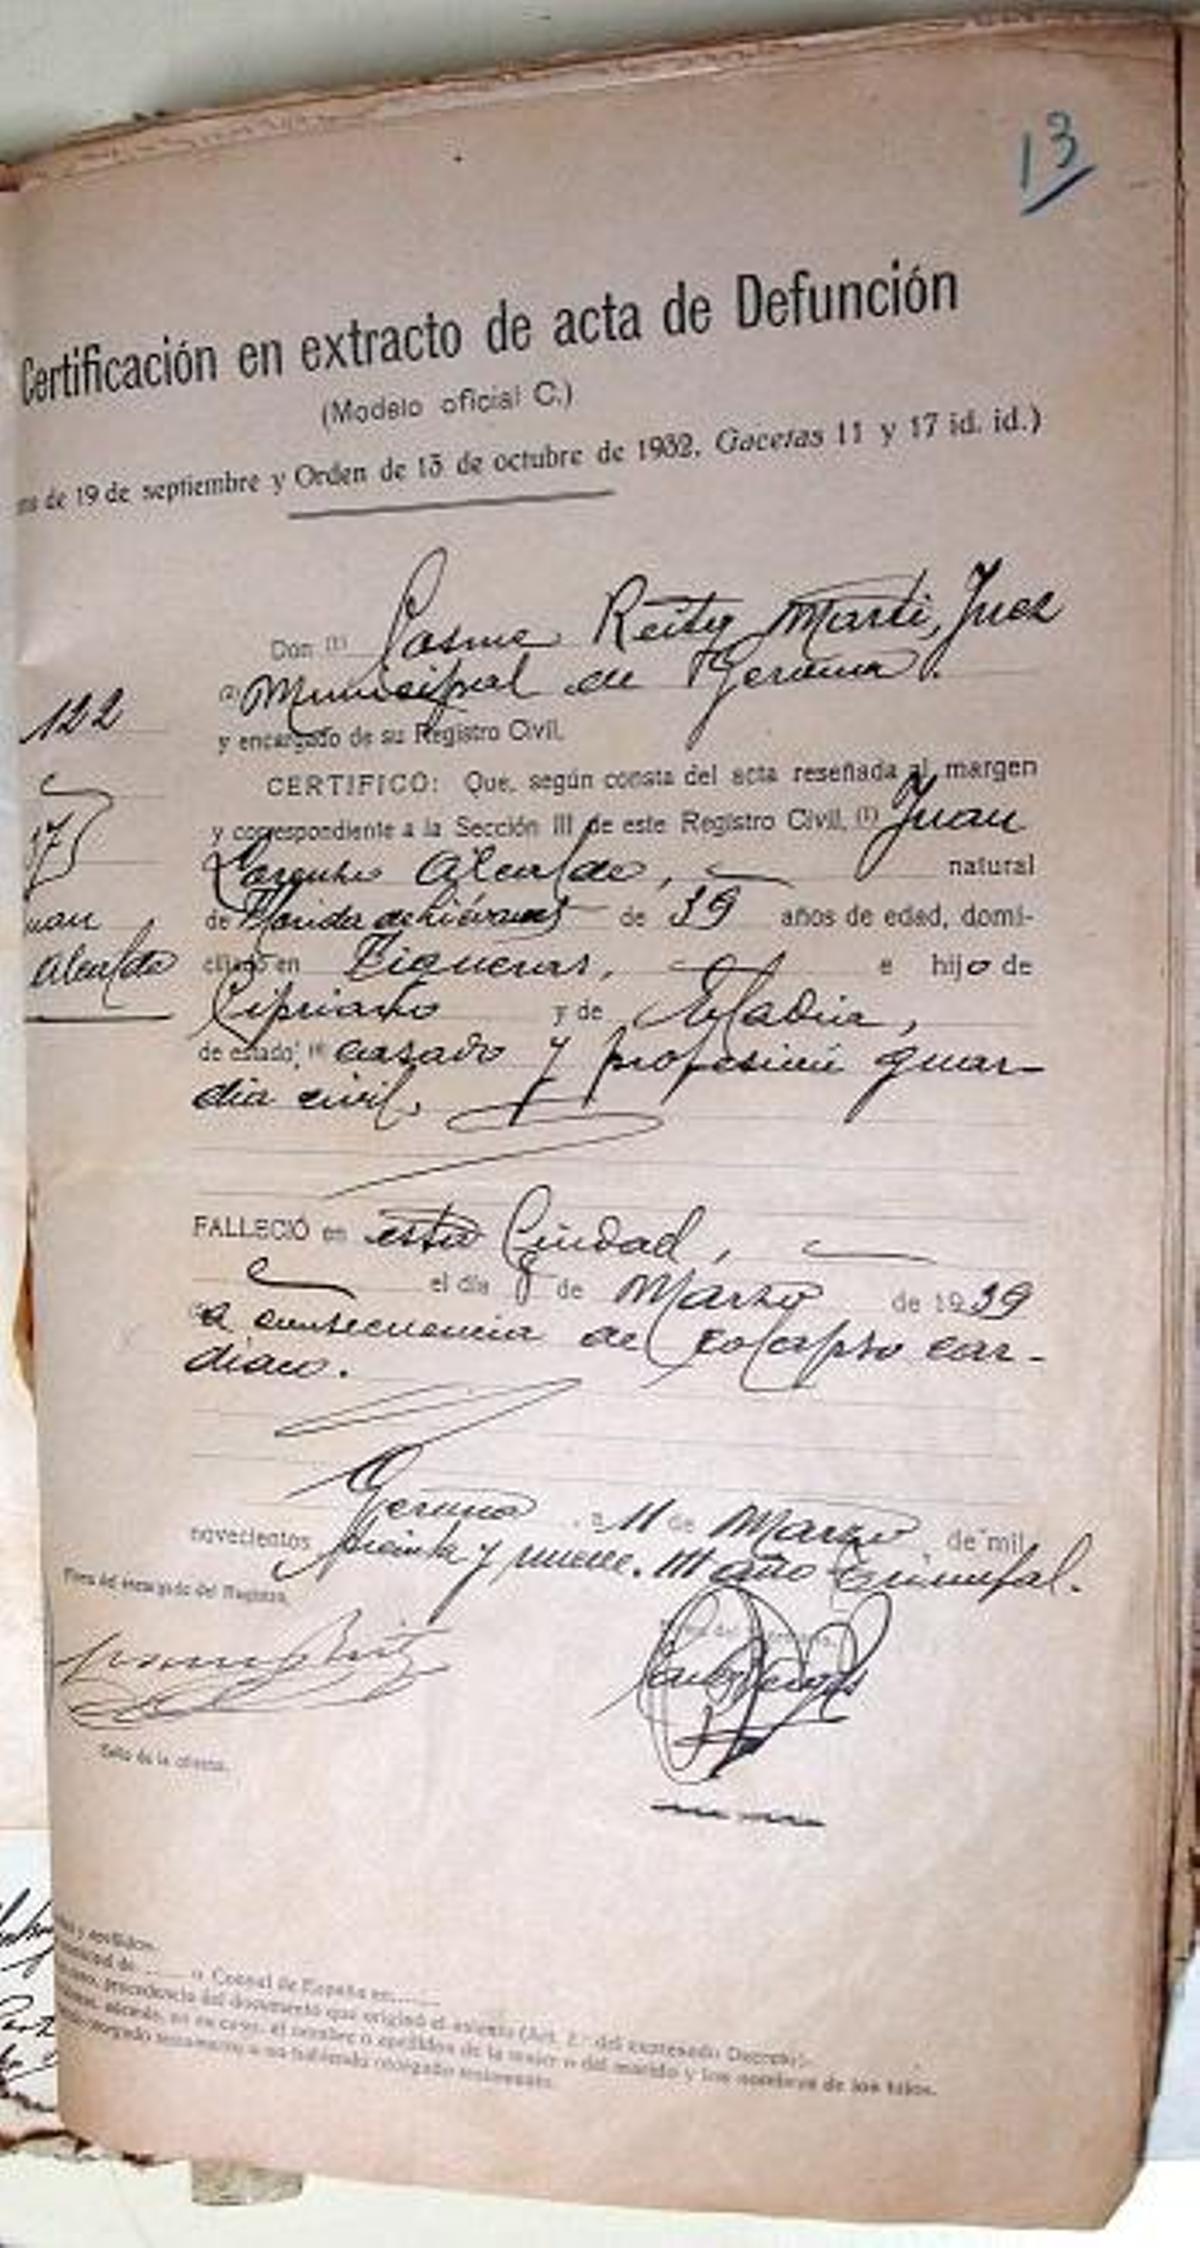 13
Certificación en extracto de acta de Defunción
(Modelo oficial C.)
de 19 de septiembre y Orden de 13 de octubre de 1932. Gacetas 11 y 17 id. id.)
Don (1) Cosme Reitg Marti, Juez
(2) Municipal de Gerona.
y encargado de su Registro Civil.
122
CERTIFICO: Que, según consta del acta reseñada al margen
y correspondiente a la Sección III de este Registro Civil, (1) Juan
natural
Alcalde,
de de 39 años de edad, domi-
ciliado en Figueras, e hijo de
Alcalde
Cipriano y de Eladia,
de estado casado y profesión guar-
dia civil.
FALLECIÓ en esta Ciudad,
el día 8 de Marzo de 1939
a consecuencia de colapso car-
diaco.
Gerona a 11 de Marzo de mil
novecientos treinta y nueve. III año Triunfal.
Firma del encargado del Registro.
Sello de la oficina.
y apellidos.
o Consul de España en
procedencia del documento que originó el asiento (Art. 2.º del expresado Decreto).
el nombre o apellidos de la mujer o del marido y los nombres de los hijos.
otorgado testamento o no habiendo otorgado testamento.